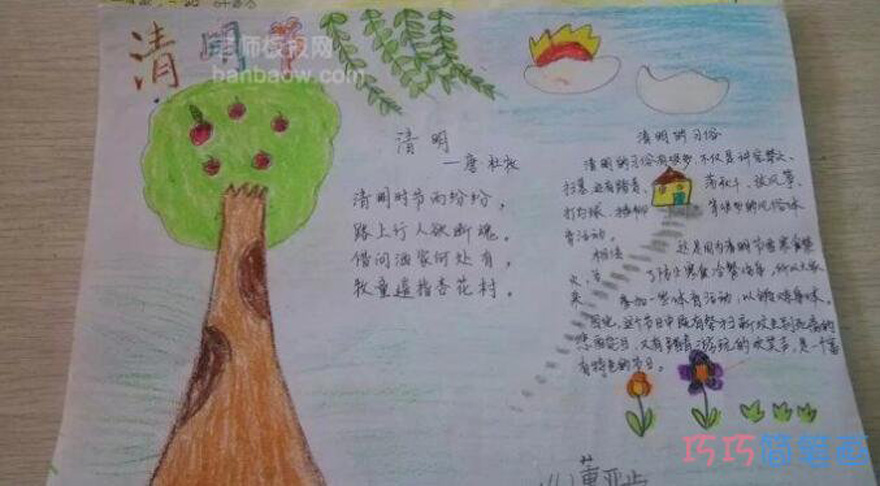 清明节
老师板报网
banbaow.com
清明
—唐 杜牧
清明时节雨纷纷，
路上行人欲断魂。
借问酒家何处有，
牧童遥指杏花村。
清明的习俗
清明的习俗有很多 不仅是讲究禁火、
扫墓 还有踏青、荡秋千、放风筝、
打马球、插柳
育活动。
相传 这是因为清明节要寒食禁
火，
来 参加一些体育活动，以锻炼身体。
因此，这个节日中既有祭扫新坟生别死离的
悲酸泪，又有踏青游玩的欢笑声，是一个富
有特色的节日。
董亚
巧巧简笔画